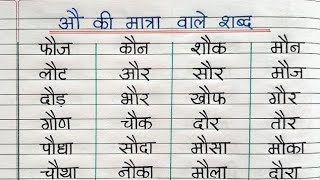 औ की मात्रा वाले शब्द
फौज कौन शौक मौन
लौट और सौर मौज
दौड़ भौर खौफ गौर
गौण चौक दौर तौर
पौधा सौदा मौसा मौका
चौथा नौका मौला दौरा